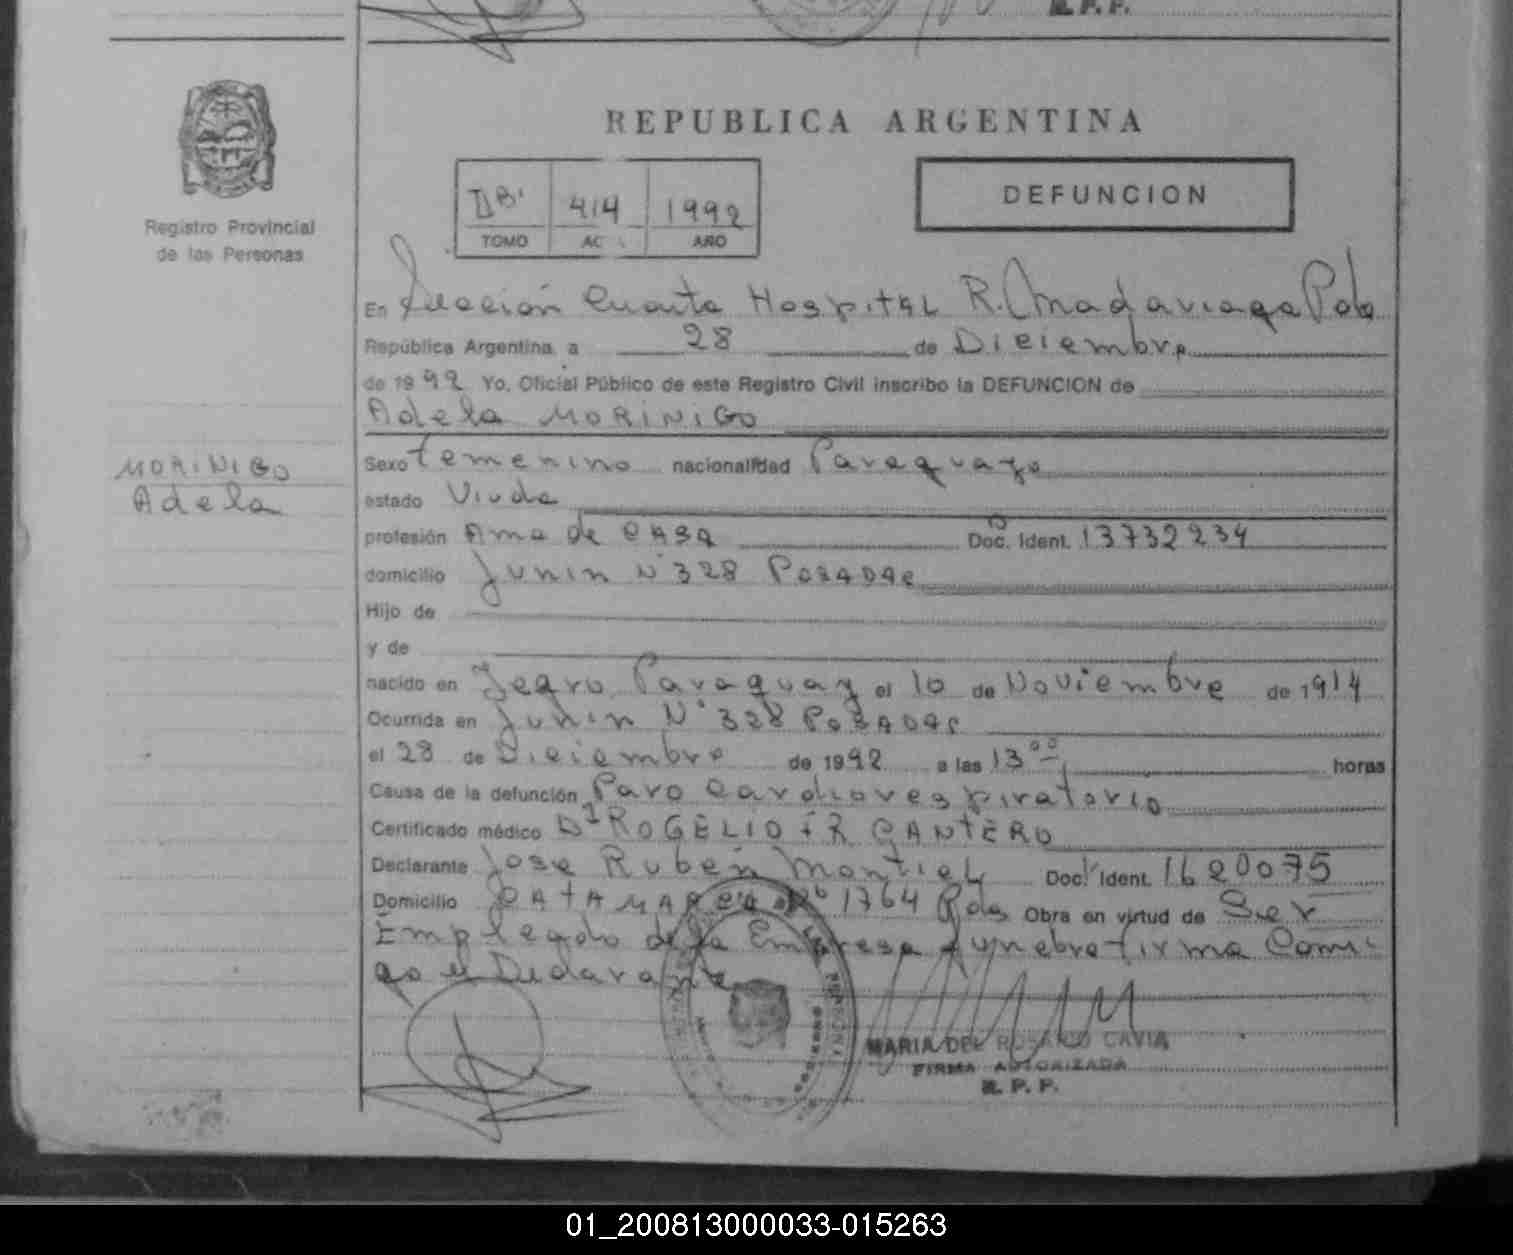 R. P. P.
REPUBLICA ARGENTINA
Registro Provincial
de las Personas
414 1992
TOMO AC AÑO
DEFUNCION
En Sección Cuarta Hospital R. Madariaga Pdas
República Argentina, a 28 de Diciembre
de 1992 Yo, Oficial Público de este Registro Civil inscribo la DEFUNCION de
Adela MORINIGO
MORINIGO
Adela
Sexo femenino nacionalidad Paraguaya
estado Viuda
profesión Ama de CASA Doc. Ident. 13732234
domicilio Junin N° 328 POSADAS
Hijo de
y de
nacido en Yegro, Paraguay el 10 de Noviembre de 1914
Ocurrida en Junin N° 328 POSADAS
el 28 de Diciembre de 1992 a las 13 00 horas
Causa de la defunción Paro Cardiorespiratorio
Certificado médico Dr ROGELIO FR CANTERO
Declarante Jose Ruben Montiel Doc. Ident. 1620075
Domicilio CATAMARCA No 1764 Pdas Obra en virtud de Ser
Empleado de la Empresa funebre firma Comi-
go el Declarante
MARIA DEL ROSARIO CAVIA
FIRMA AUTORIZADA
R. P. P.
01_200813000033-015263